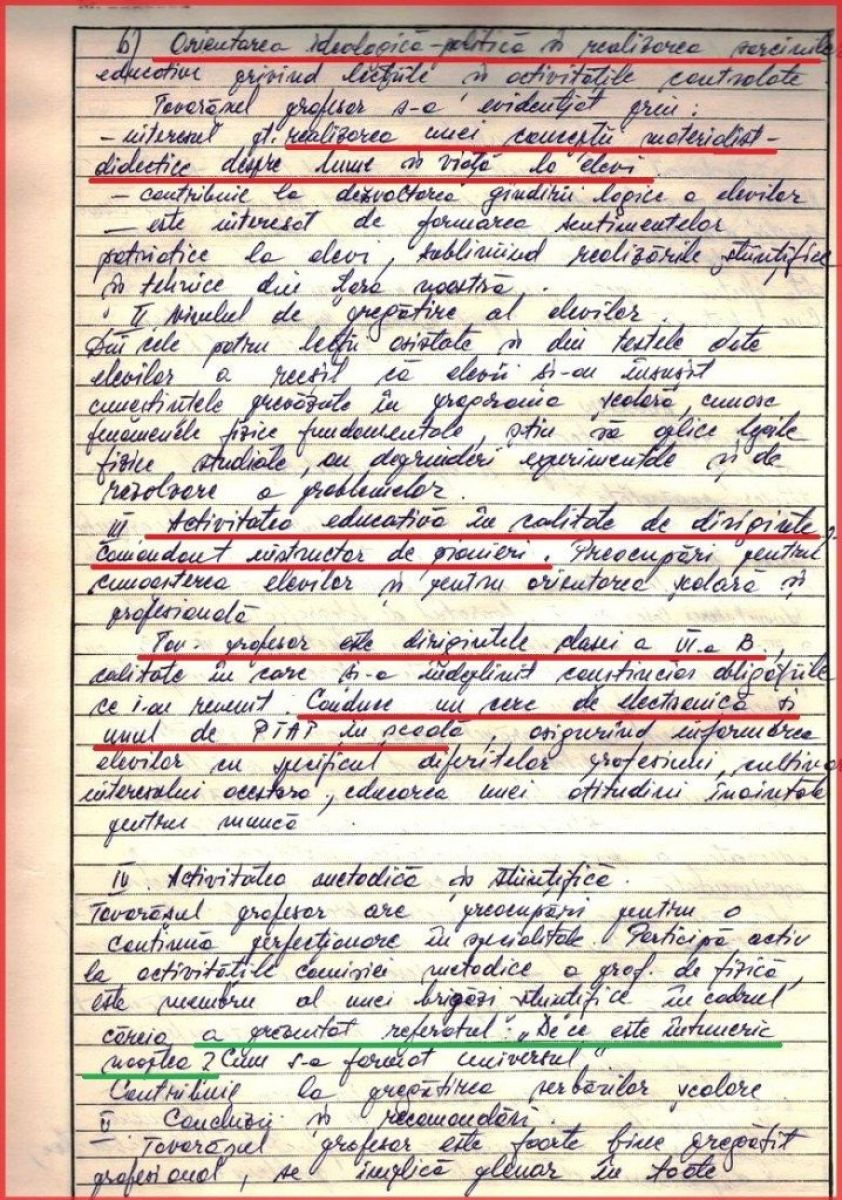 b) Orientarea ideologică-politică și realizarea sarcinilor
educative privind lecțiile și activitățile controlate
Tovarășul profesor s-a evidențiat prin:
- interesul pt. realizarea unei concepții materialist-
didectice despre lume și viață la elevi.
- contribuie la dezvoltarea gîndirii logice a elevilor
- este interesat de formarea sentimentelor
patriotice la elevi, subliniind realizările științifice
și tehnice din țara noastră.
II Nivelul de pregătire al elevilor.
Din cele patru lecții asistate și din testele date
elevilor a reeșit că elevii și-au însușit
cunoștințele prevăzute în programa școlară, cunosc
fenomenele fizice fundamentale, știu să aplice legile
fizice studiate, au deprinderi experimentale și de
rezolvare a problemelor.
III Activitatea educativă în calitate de diriginte,
comandant instructor de pionieri. Preocupări pentru
cunoașterea elevilor și pentru orientarea școlară și
profesională
Tov. profesor este dirigintele clasei a VI-a B,
calitate în care și-a îndeplinit conștincios obligațiile
ce i-au revenit. Conduce un cerc de electronică și
unul de PTAP în școală, asigurînd informarea
elevilor cu specificul diferitelor profesiuni, cultivarea
interesului acestora, educarea unei atitudini înaintate
pentru muncă
IV. Activitatea metodică și științifică.
Tovarășul profesor are preocupări pentru o
continuă perfecționare în specialitate. Participă activ
la activitățile comisiei metodice a prof. de fizică,
este membru al unei brigăzi științifice în cadrul
căreia a prezentat referatul: „De ce este întuneric
noaptea? Cum s-a format universul"
Contribuie la pregătirea serbărilor școlare
V. Concluzii și recomandări.
Tovarășul profesor este foarte bine pregătit
profesional, se implică plenar în toate